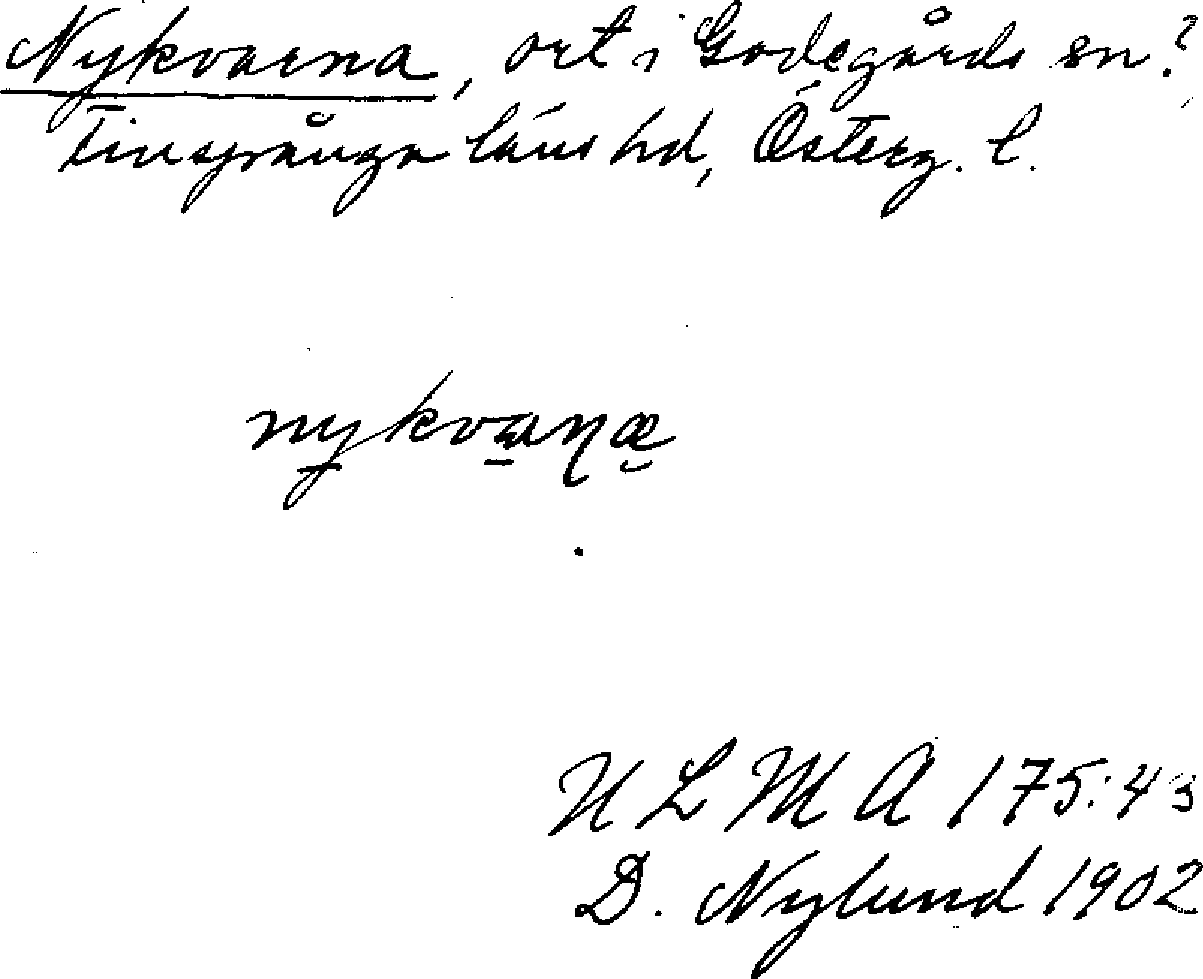 Nykvarna, ort i Godegårds sn?
Finspånga läns hd, Österg. l.
nykvaɳæ
ULMA 175:43
D. Nylund 1902